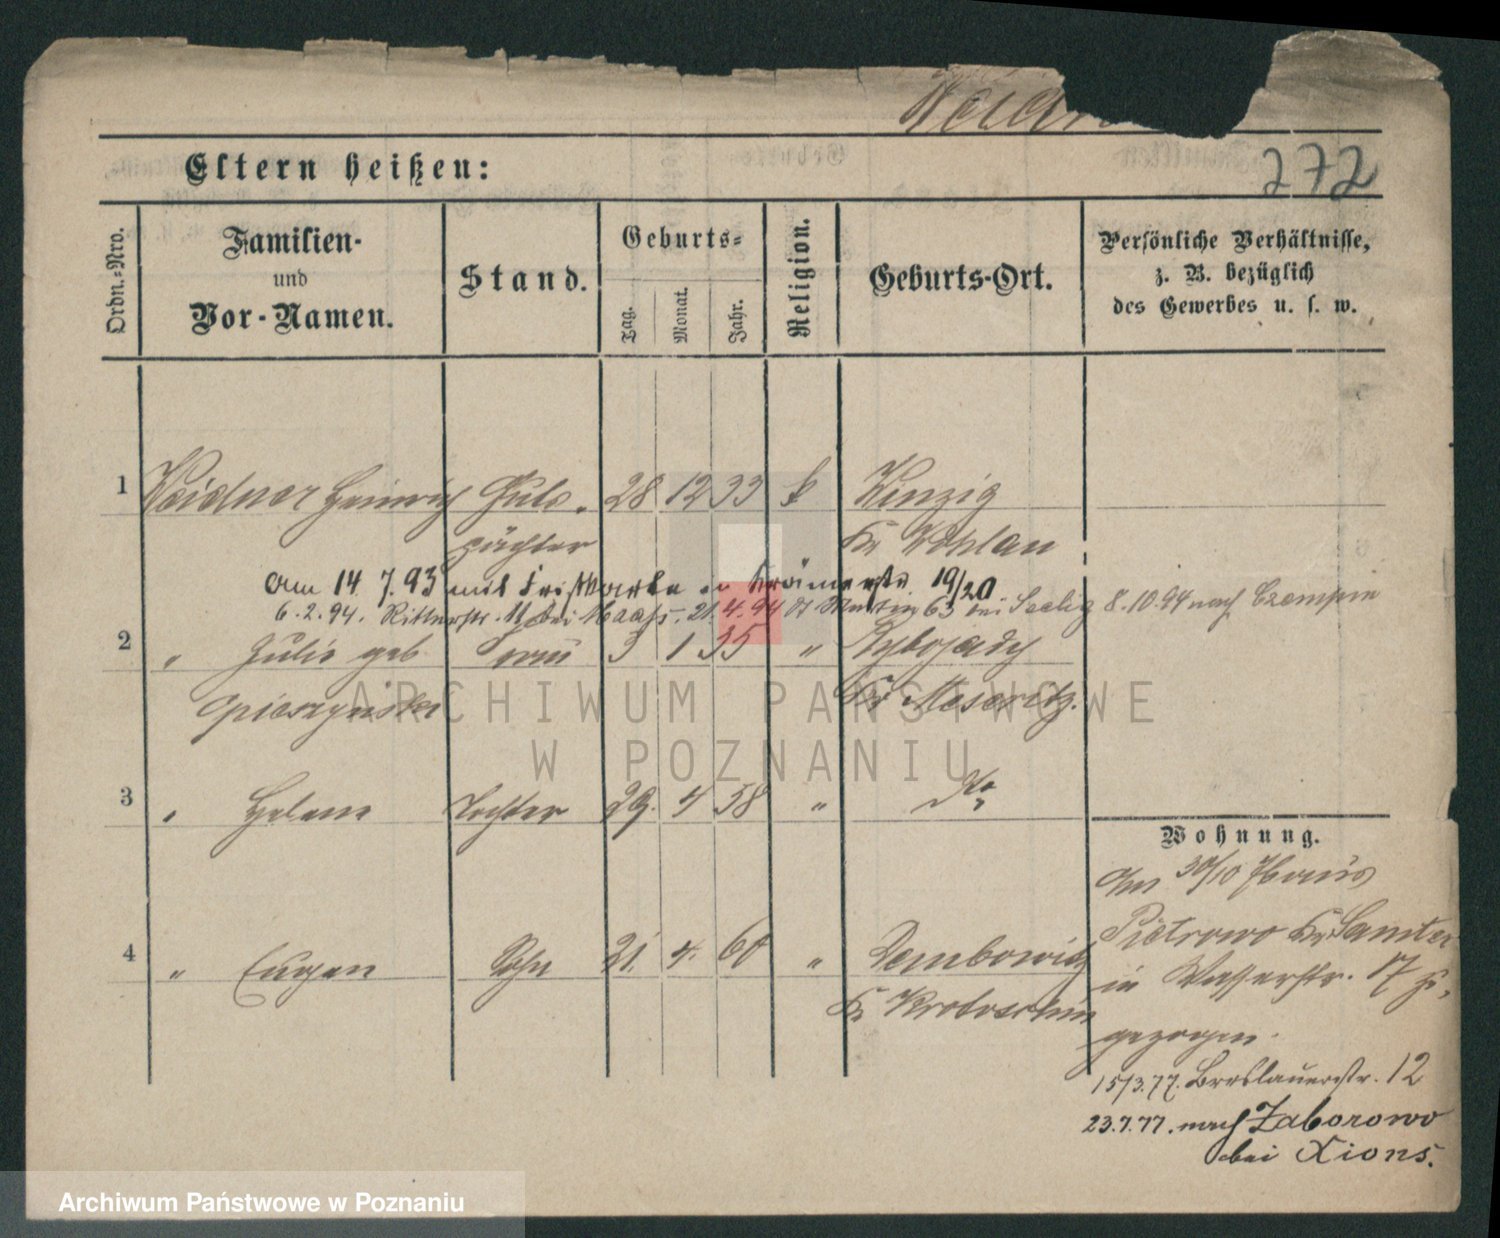 Weidn
272
Eltern heißen:
Ordn.-Nro.
Familien-
und
Vor-Namen.
Stand.
Geburts-
Tag.
Monat.
Jahr.
Religion.
Geburts-Ort.
Persönliche Verhältnisse,
z. B. bezüglich
des Gewerbes u. s. w.
1 Weidner Heinrich Guts- 28 12 33 k Winzig
pächter Kr Wohlau
Am 14 7. 93 mit Krämerstr. 19/20
6.2.94. Ritterstr. 11 bei Haass. 21.4.94 St Martin 63 bei Seelig 8.10.94 nach Czempin
2 " Julie geb Frau 3 1 35 " Rybojady
Kr Meseritz.
3 " Helene Tochter 29. 4 58 " do
4 " Eugen Sohn 21. 4. 60 "
Kr Krotoschin
Wohnung.
Am 30/10 76 aus
Pietrowo Kr Samter
in Wasserstr. 17 zu,
gezogen.
15/3.77. Breslauerstr. 12
23.7.77. nach Zaborowo
bei Xions.
ARCHIWUM PAŃSTWOWE
W POZNANIU
Archiwum Państwowe w Poznaniu